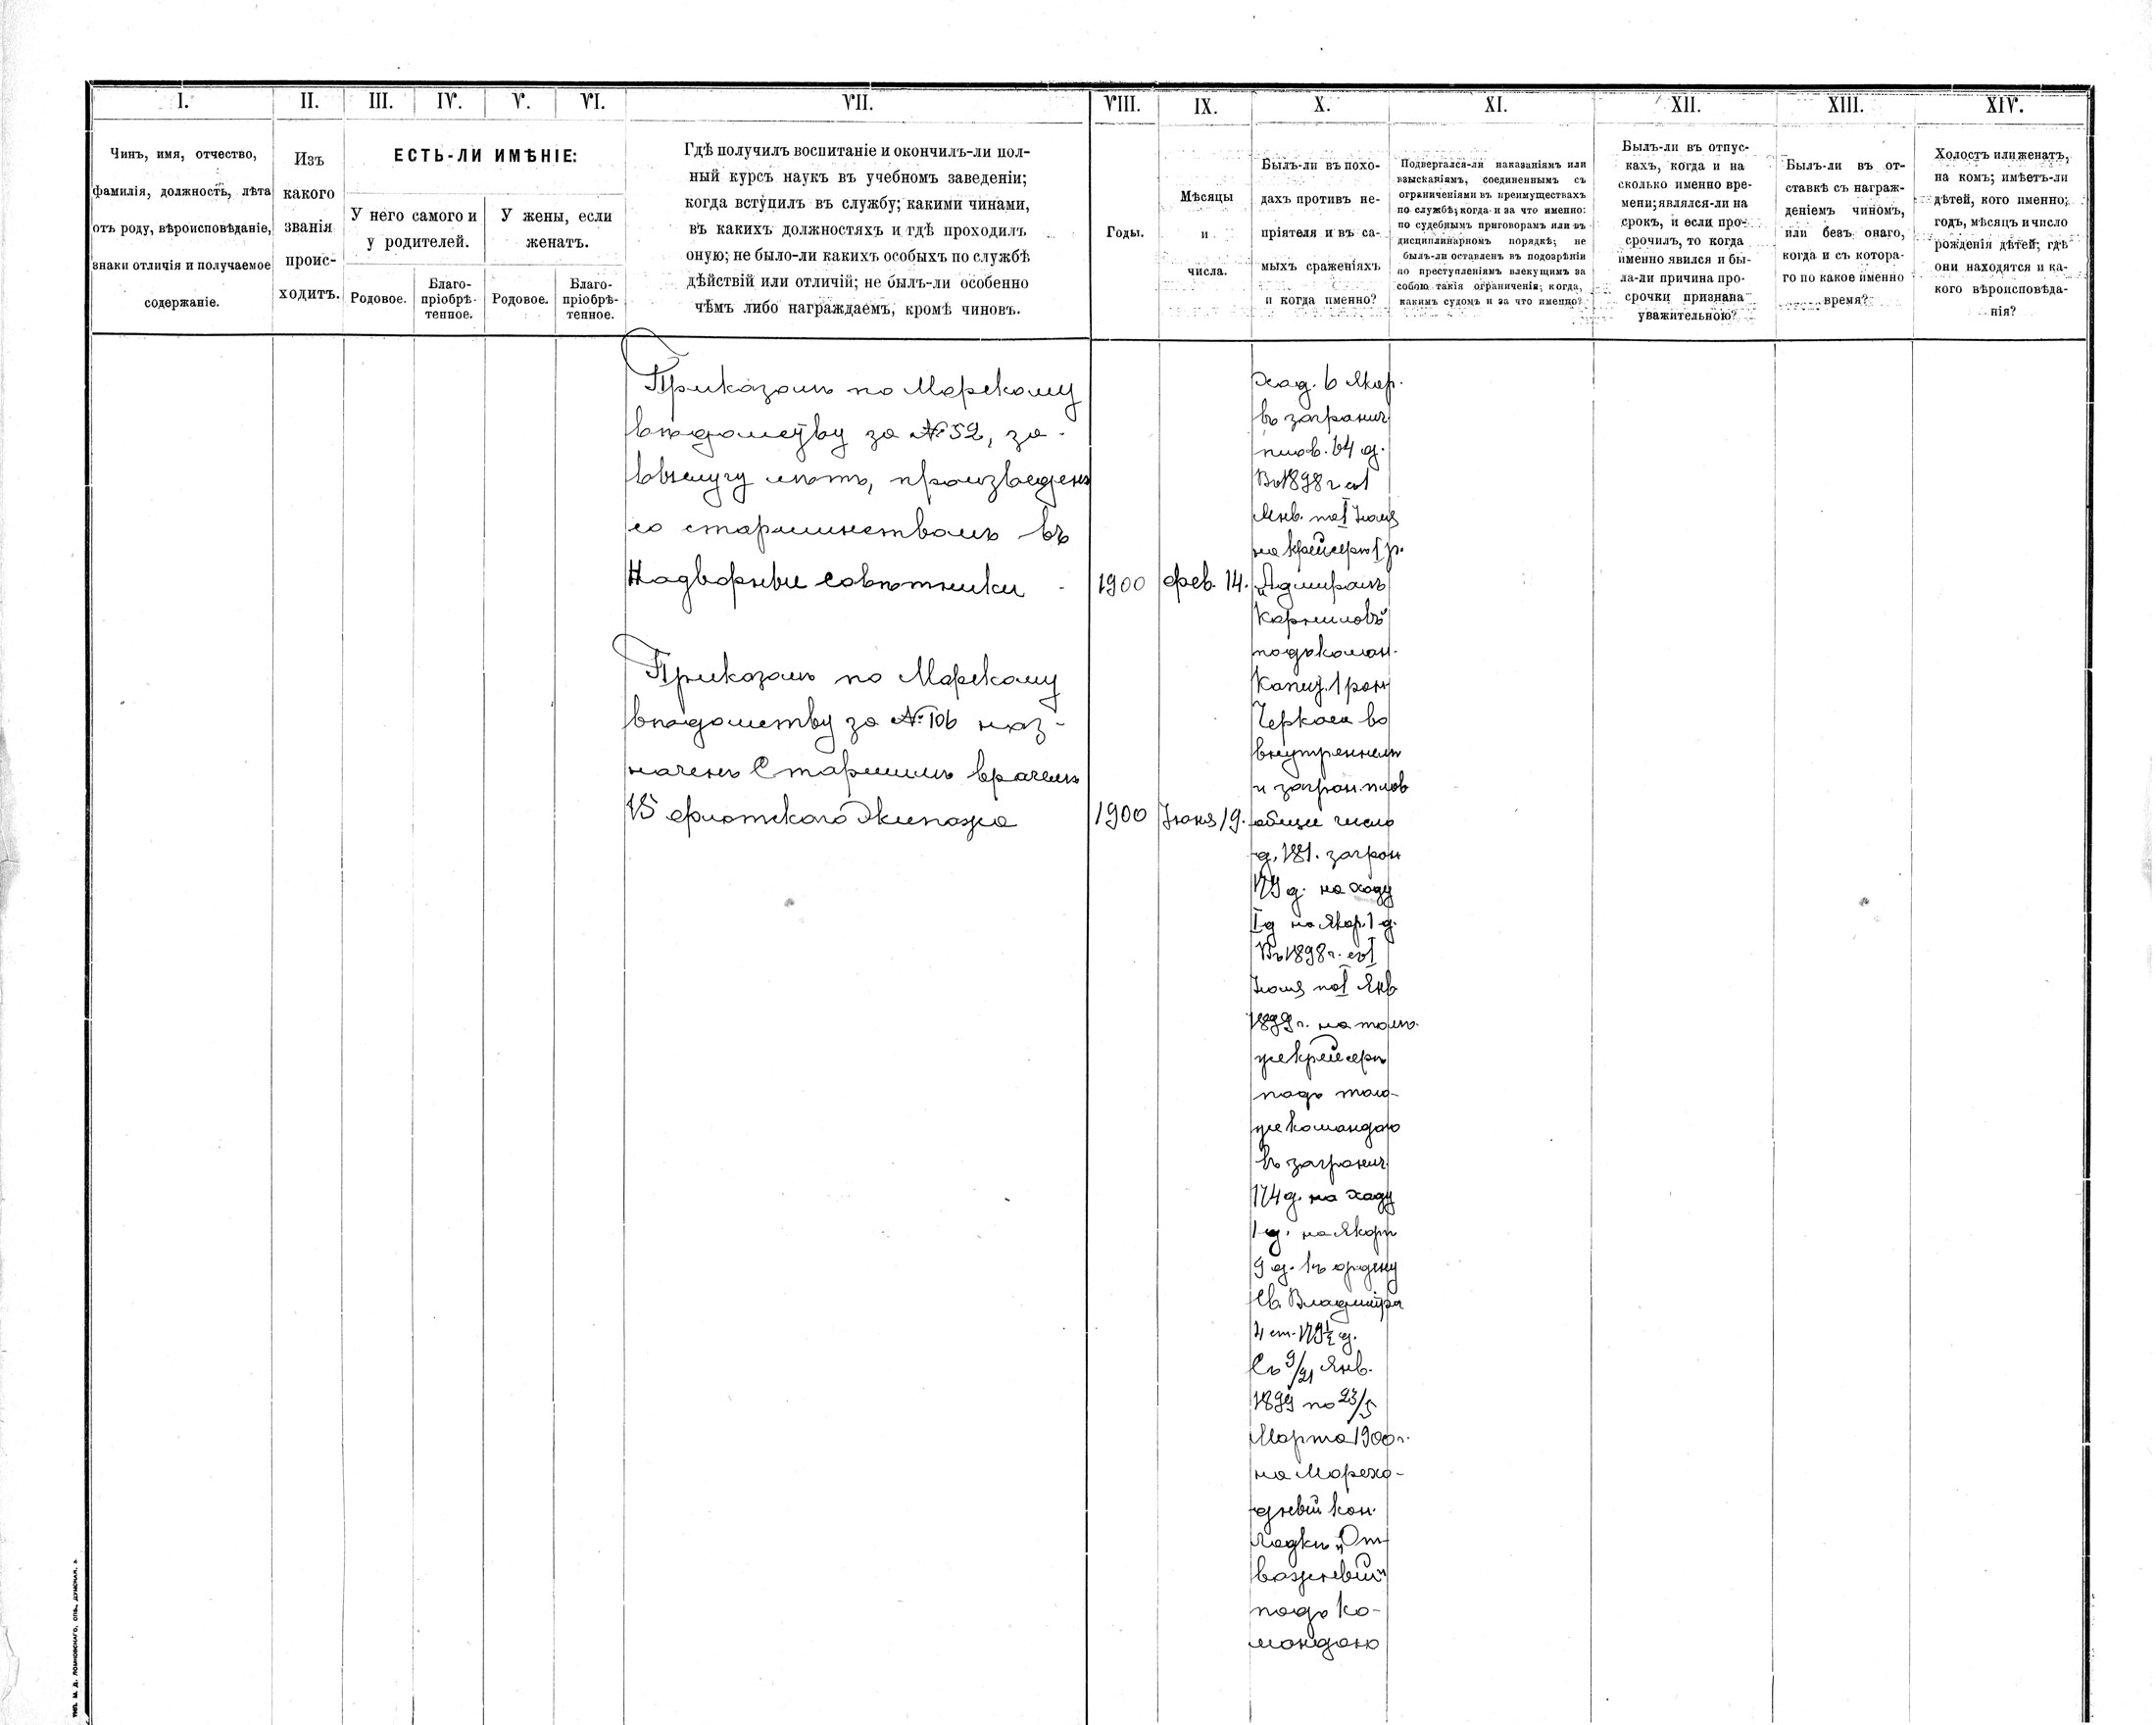 I.
II.
III.
IV.
V.
VI.
VII.
VIII.
IX.
X.
XI.
XII.
XIII.
XIV.
Чинъ, имя, отчество,
фамилія, должность, лѣта
отъ роду, вѣроисповѣданіе,
знаки отличія и получаемое
содержаніе.
Изъ
какого
званія
проис-
ходитъ.
ЕСТЬ-ЛИ ИМѢНІЕ:
У него самого и
у родителей.
У жены, если
женатъ.
Родовое.
Благо-
пріобрѣ-
тенное.
Родовое.
Благо-
пріобрѣ-
тенное.
Гдѣ получилъ воспитаніе и окончилъ-ли пол-
ный курсъ наукъ въ учебномъ заведеніи;
когда вступилъ въ службу; какими чинами,
въ какихъ должностяхъ и гдѣ проходилъ
оную; не было-ли какихъ особыхъ по службѣ
дѣйствій или отличій; не былъ-ли особенно
чѣмъ либо награждаемъ, кромѣ чиновъ.
Годы.
Мѣсяцы
и
числа.
Былъ-ли въ похо-
дахъ противъ не-
пріятеля и въ са-
мыхъ сраженіяхъ
и когда именно?
Подвергался-ли наказаніямъ или
взысканіямъ, соединеннымъ съ
ограниченіями въ преимуществахъ
по службѣ; когда и за что именно:
по судебнымъ приговорамъ или въ
дисциплинарномъ порядкѣ; не
былъ-ли оставленъ въ подозрѣніи
по преступленіямъ влекущимъ за
собою такія ограниченія; когда,
какимъ судомъ и за что именно?
Былъ-ли въ отпус-
кахъ, когда и на
сколько именно вре-
мени; являлся-ли на
срокъ, и если про-
срочилъ, то когда
именно явился и бы-
ла-ли причина про-
срочки признана
уважительною?
Былъ-ли въ от-
ставкѣ съ награж-
деніемъ чиномъ,
или безъ онаго,
когда и съ котора-
го по какое именно
время?
Холостъ или женатъ,
на комъ; имѣетъ-ли
дѣтей, кого именно;
годъ, мѣсяцъ и число
рожденія дѣтей; гдѣ
они находятся и ка-
кого вѣроисповѣда-
нія?
Приказомъ по Морскому
вѣдомству за № 52, за
выслугу лѣтъ, произведенъ
со старшинствомъ въ
Надворные совѣтники
1900 фев. 14.
Приказомъ по Морскому
вѣдомству за № 106 наз-
наченъ Старшимъ врачемъ
15 флотскаго Экипажа
1900 Іюня 19.
ход. 6 якор.
въ загранич
плав. 64 д.
Въ 1898 г. съ 1
Янв. по 1 Іюля
на крейсерѣ 1 р.
„Адмиралъ
Корниловъ"
подъ коман.
Капит. 1 ранг
Черкаса во
внутреннемъ
и загран. плав
общее число
д. 181. загран
179 д. на ходу
1 д на якор. 1 д.
Въ 1898 г. съ 1
Іюля по 1 Янв
1899 г. на томъ
же крейсерѣ
подъ того-
же командою
въ загранич
174 д. на ходу
1 д. на якорѣ
9 д. къ ордену
Св. Владиміра
4 ст. 179½ д.
Съ 9/21 Янв.
1899 по 23/5
Марта 1900 г.
на Морехо-
дный кан.
лодкѣ „От
важный"
подъ ко-
мандою
ТИП. М. Д. ЛОМКОВСКАГО, СПБ., ДУМСКАЯ,